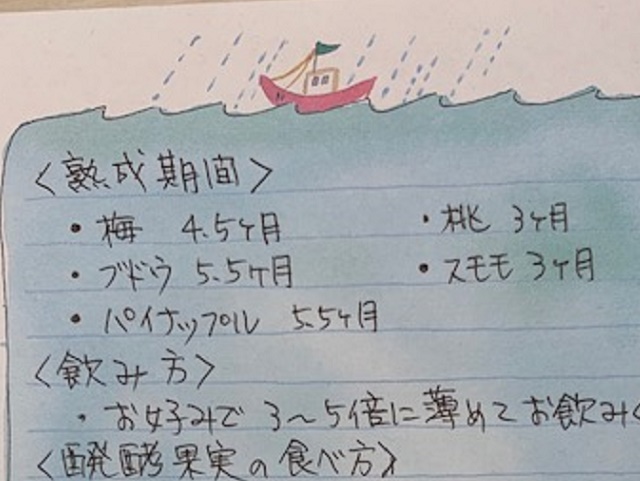 <熟成期間>
・梅 4.5ヶ月 ・桃 3ヶ月
・ブドウ 5.5ヶ月 ・スモモ 3ヶ月
・パイナップル 5.5ヶ月
<飲み方>
・お好みで 3~5倍に薄めてお飲みく
<醗酵果実の食べ方>